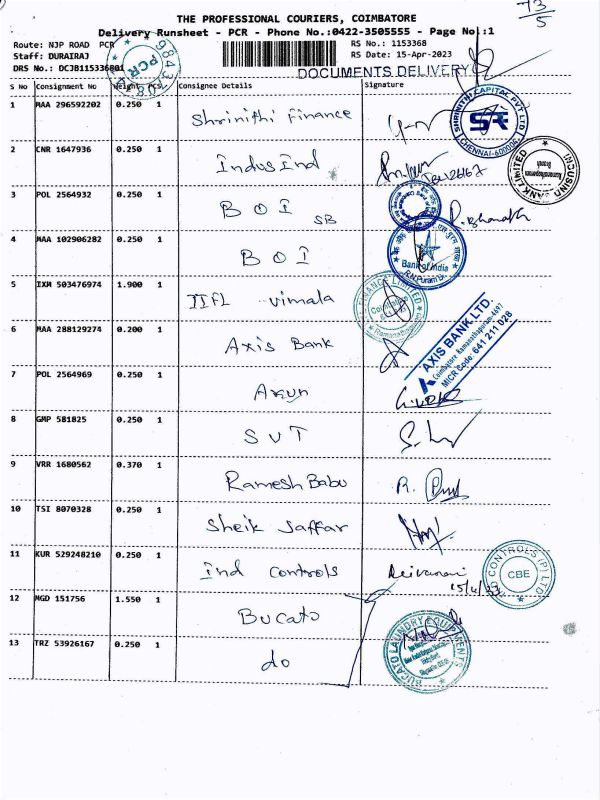 73/5
THE PROFESSIONAL COURIERS, COIMBATORE
Delivery Runsheet - PCR - Phone No.:0422-3505555 - Page No.:1
Route: NJP ROAD PCR
RS No.: 1153368
Staff: DURAIRAJ
RS Date: 15-Apr-2023
DRS No.: DCJB115336801
DOCUMENTS DELIVERY
PCR
S No Consignment No Weight PCS Consignee Details Signature
1 MAA 296592202 0.250 1 Shrinithi Finance
SHRINITHI CAPITAL PVT LTD
CHENNAI-600006
2 CNR 1647936 0.250 1 IndusInd
INDUSIND BANK LIMITED
3 POL 2564932 0.250 1 BOI SB
4 MAA 102906282 0.250 1 BOI
Bank of India
R.N.Puram Br.
5 IXM 503476974 1.900 1 IIFL Vimala
Coimbatore
6 MAA 288129274 0.200 1 Axis Bank
AXIS BANK LTD.
MICR Code: 641 211 028
7 POL 2564969 0.250 1 Arun
8 GMP 581825 0.250 1 SVT
9 VRR 1680562 0.370 1 Ramesh Babu R.
10 TSI 8070328 0.250 1 Sheik Jaffar
11 KUR 529248210 0.250 1 Ind Controls
15/4/23
CONTROLS (P) LTD
CBE
12 MGD 151756 1.550 1 Bucato
BUCATO LAUNDRY EQUIPMENTS
13 TRZ 53926167 0.250 1 do